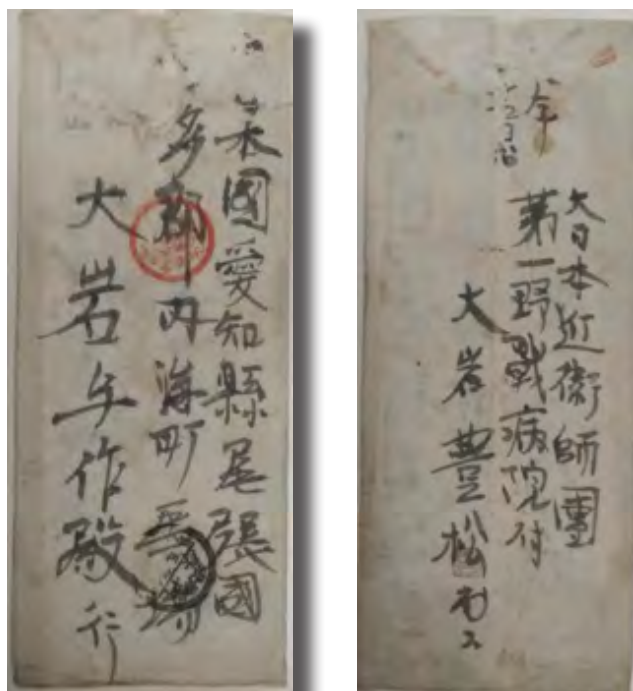 本國愛知縣尾張國
多郡内海町
大岩与作殿行
大日本近衛師團
第一野戰病院付
大岩豊松